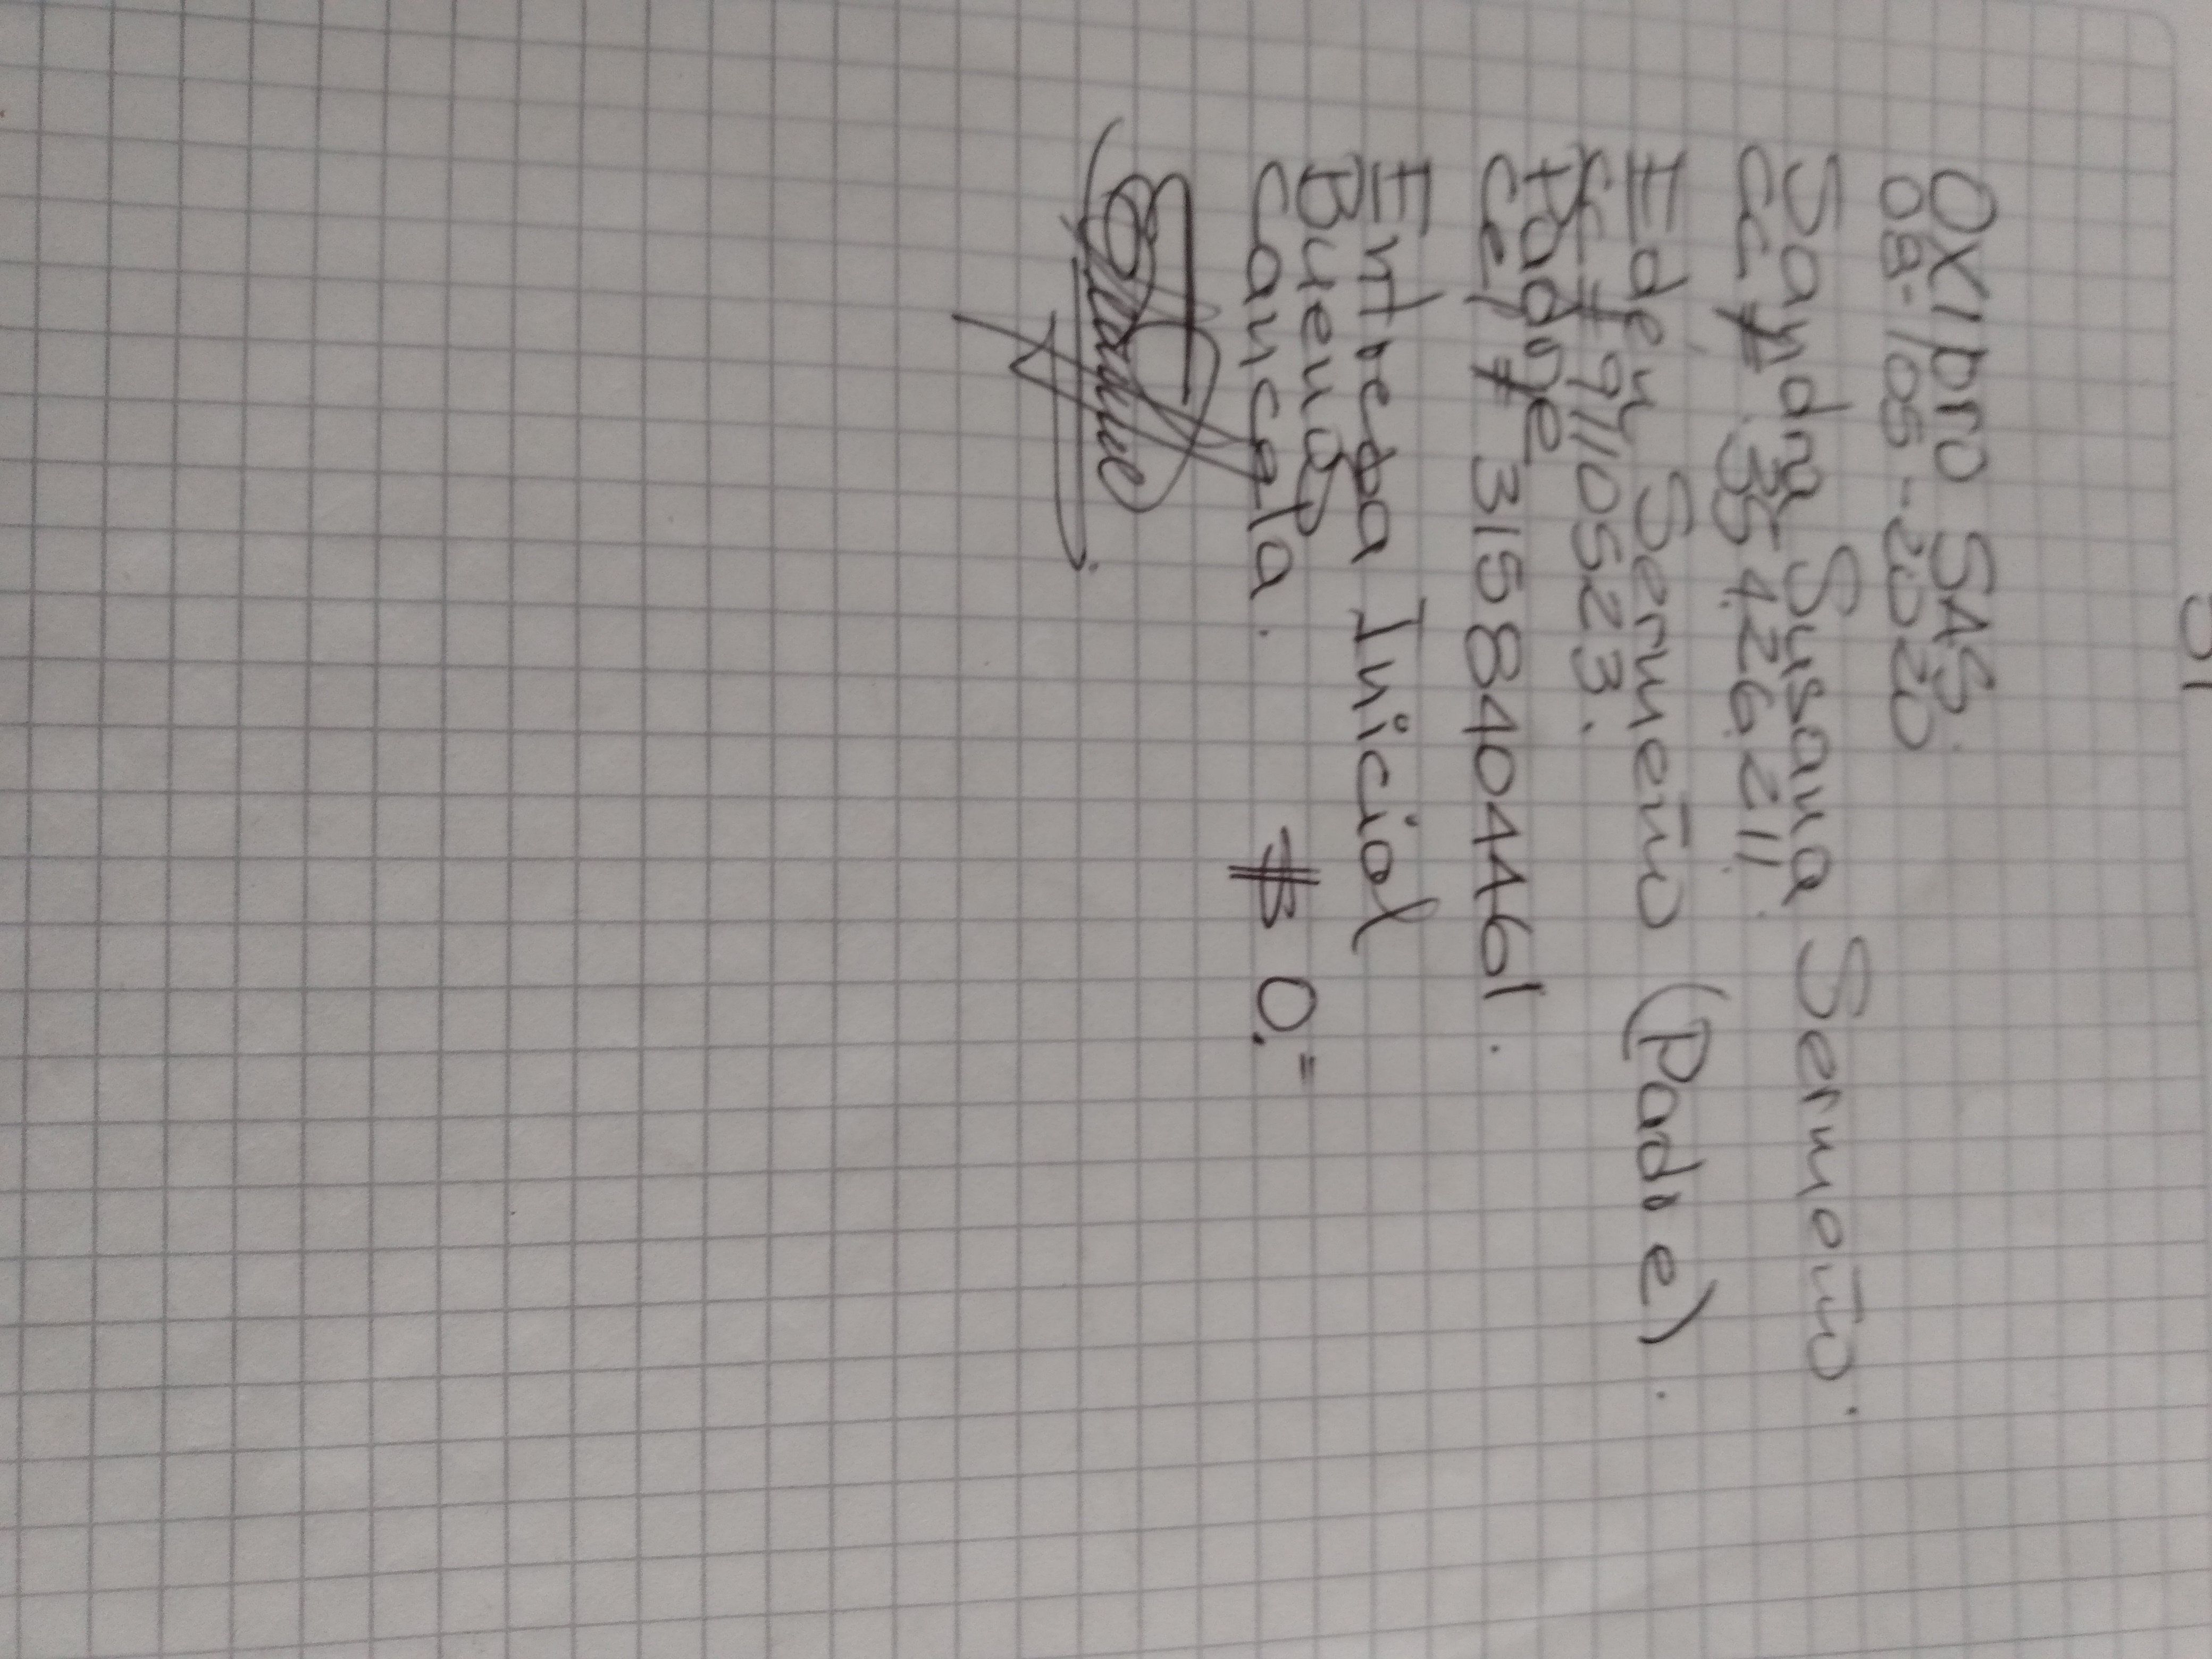 OXIpro SAS.
08-105-2020
Sandra Susana Sermeño.
CC # 35.426.211.
Eden Sermeño (Padre).
CC # 91110523.
Padre
Cel # 3158404461.
Entrega Inicial
Bueno
Cancela. $ 0.=